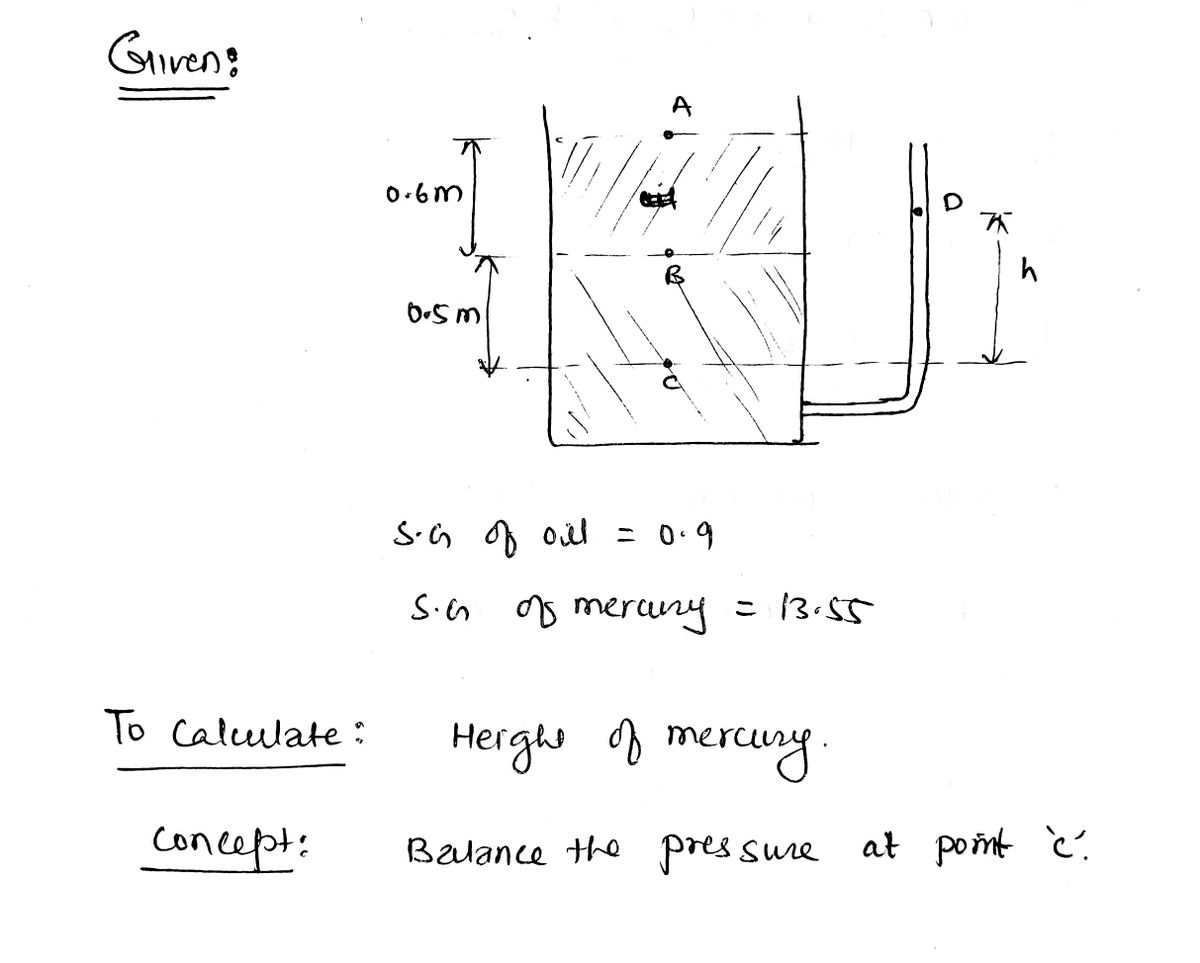 Given:
A
0.6m
D
B
h
0.5m
C
S.G of oil = 0.9
S.G of mercury = 13.55
To Calculate: Height of mercury.
Concept: Balance the pressure at point 'c'.